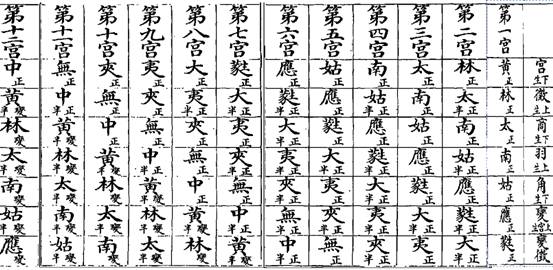 宮下生 徵上生 商下生 羽上生 角下生 變宮上生 變徵
第一宮 黃正 林正 太正 南正 姑正 應正 蕤正
第二宮 林正 太正半 南正 姑正半 應正 蕤正半 大正半
第三宮 太正 南正 姑正 應正 蕤正 大正半 夷正
第四宮 南正 姑正半 應正 蕤正半 大正半 夷正半 夾正半
第五宮 姑正 應正 蕤正 大正半 夷正 夾正半 無正
第六宮 應正 蕤正半 大正半 夷正半 夾正半 無正半 中正半
第七宮 蕤正 大正半 夷正 夾正半 無正 中正半 黃變半
第八宮 大正 夷正 夾正 無正 中正 黃變半 林變
第九宮 夷正 夾正半 無正 中正半 黃變半 林變半 太變半
第十宮 夾正 無正 中正 黃變半 林變 太變半 南變
第十一宮 無正 中正半 黃變半 林變半 太變半 南變半 姑變半
第十二宮 中正 黃變半 林變 太變半 南變 姑變半 應變